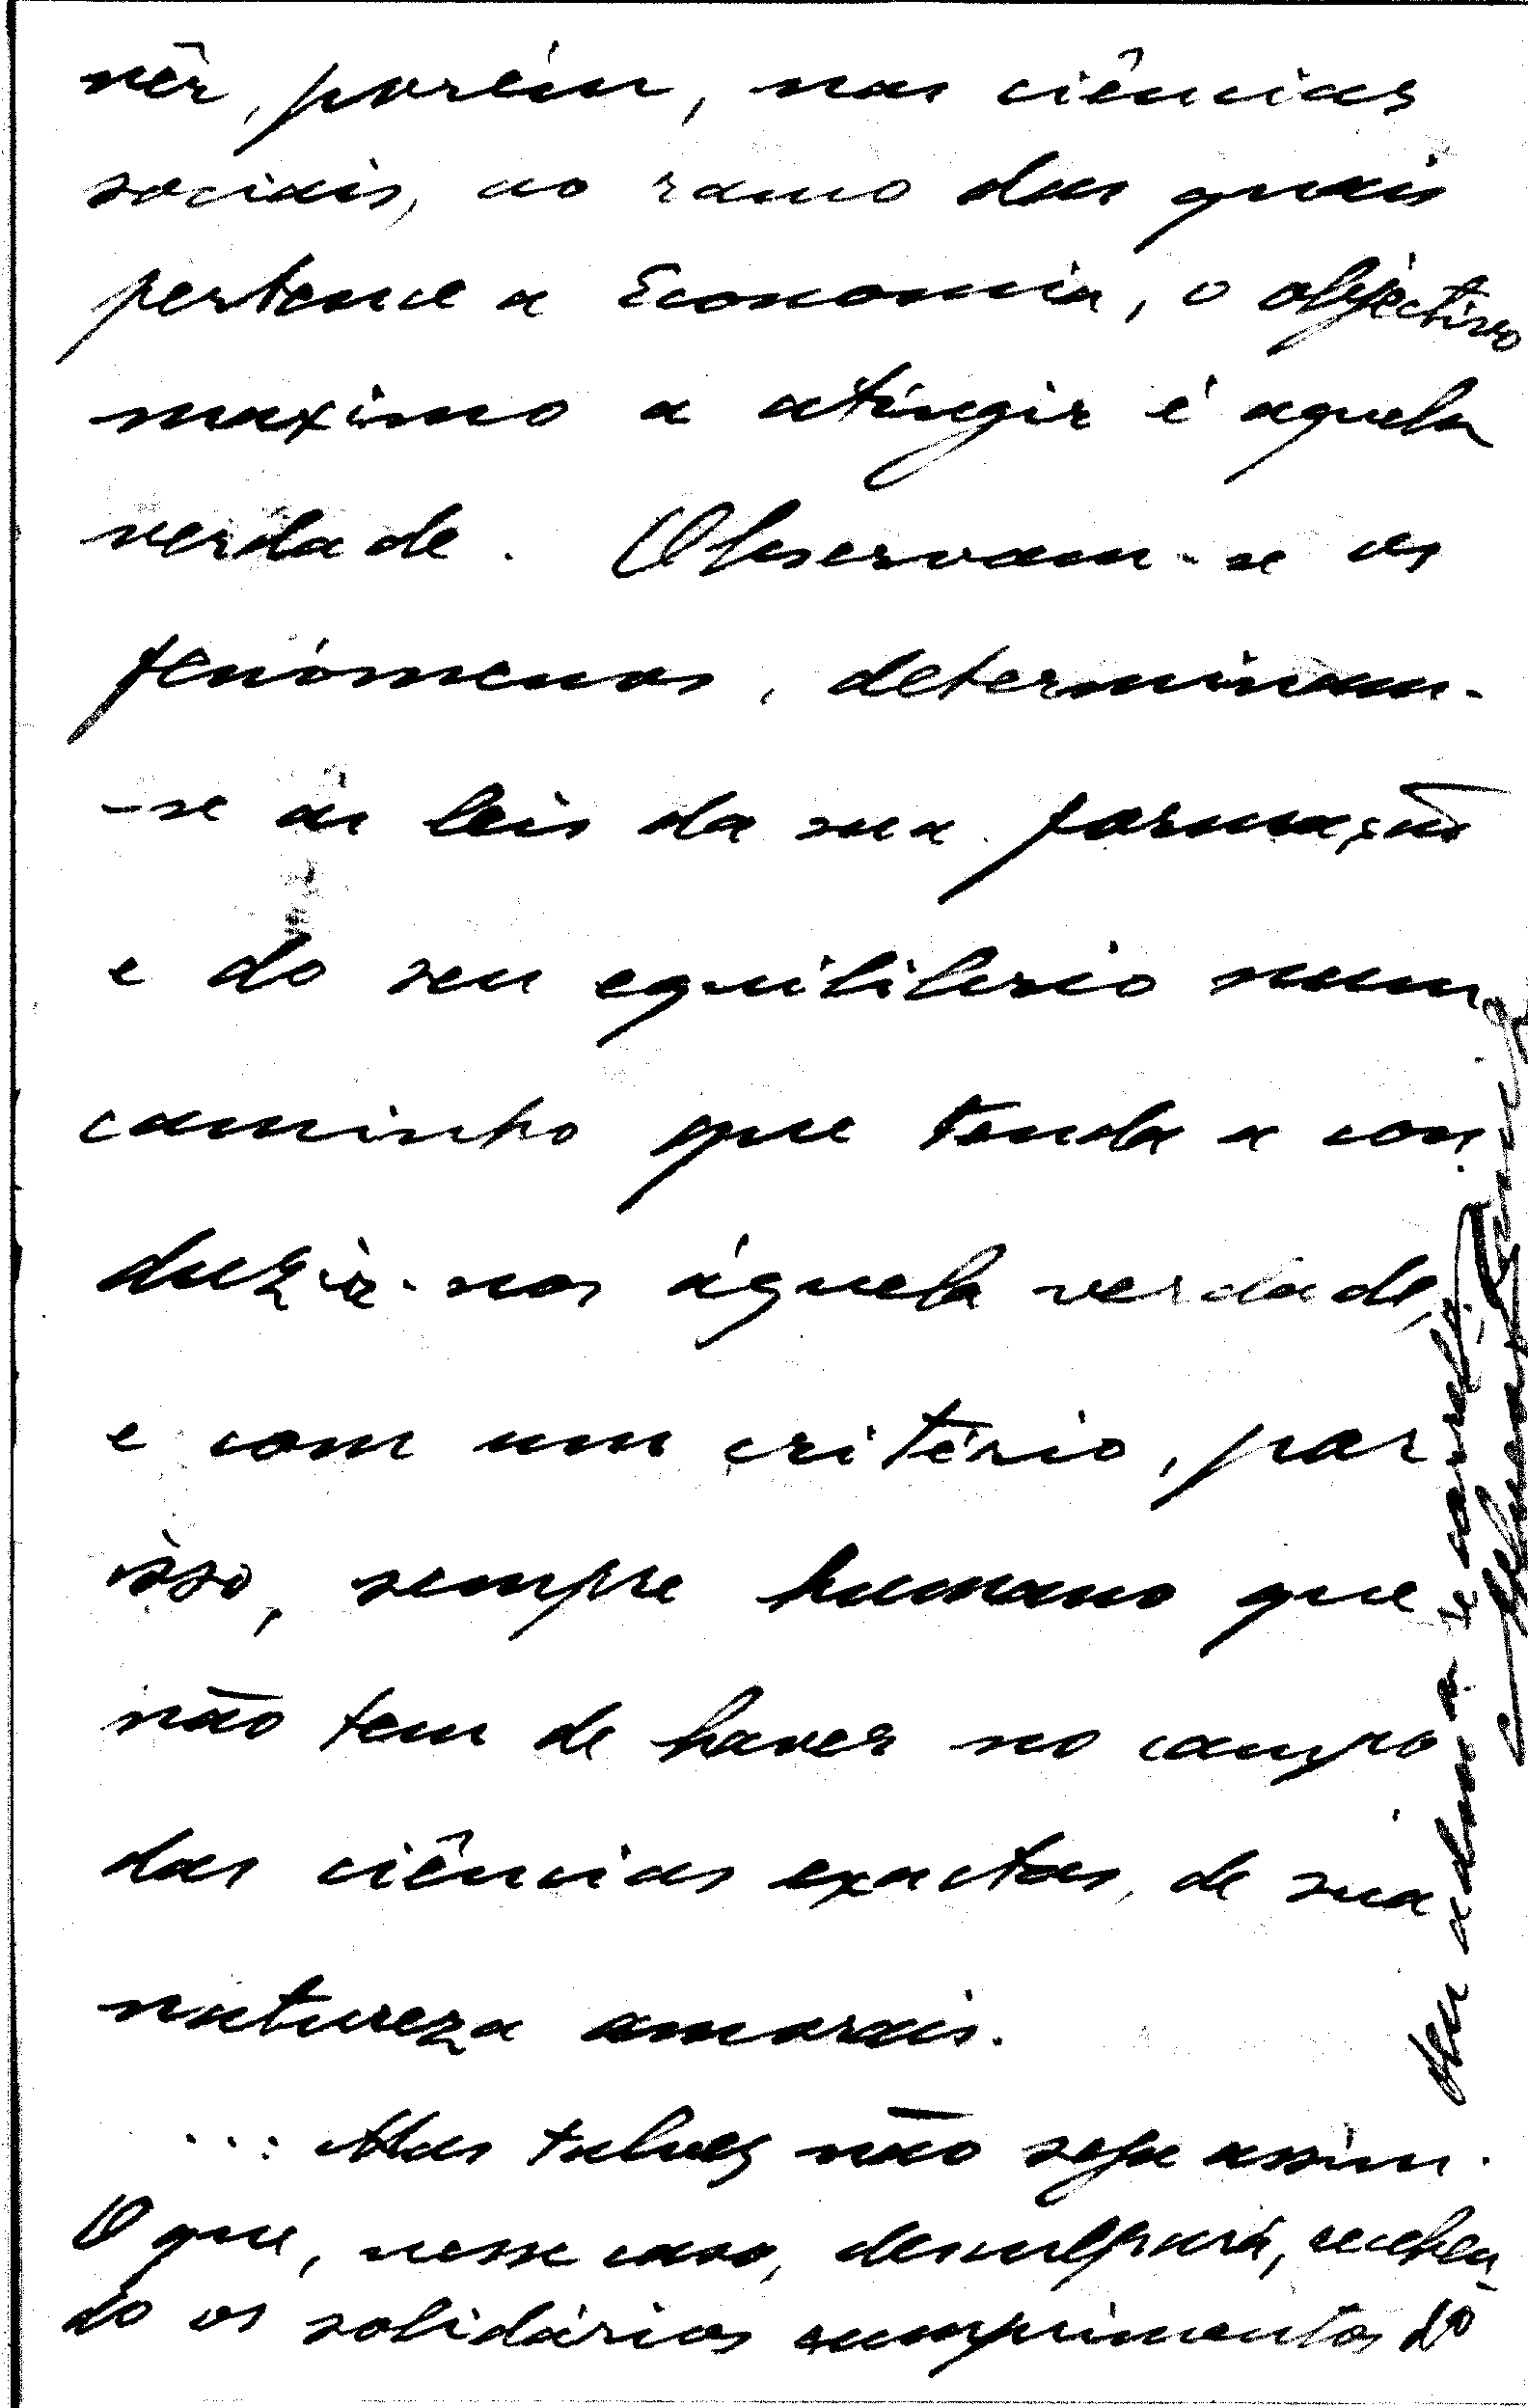 vêr, porém, nas ciências
sociais, ao ramo das quais
pertence a Economia, o objectivo
maximo a atingir é aquela
verdade. Observam-se os
fenómenos, determinam-
-se as leis da sua formação
e do seu equilibrio num
caminho que tenda a con
duzir-nos àquela verdade,
e com um critério, por
isso, sempre humano que
não tem de haver no campo
das ciências exactas, de sua
natureza amorais.
... Mas talvez não seja assim.
O que, nesse caso, desculpará, receben-
do os solidários cumprimentos do
seu adm.